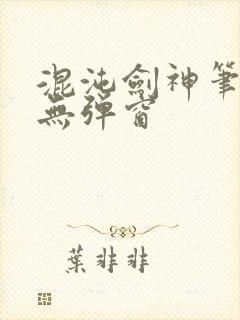 混沌劍神筆
無彈窗
葉非非